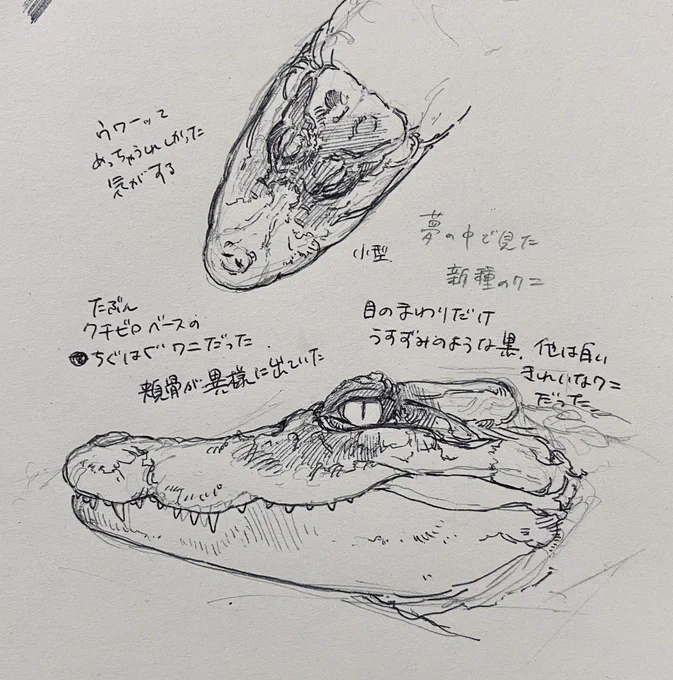 ウワーッて
めっちゃうれしかった
気がする
小型
夢の中で見た
新種のワニ
たぶん
クチビロベースの
ちぐはぐワニだった
頬骨が異様に出ていた
目のまわりだけ
うすずみのような黒、他は白い
きれいなワニ
だった